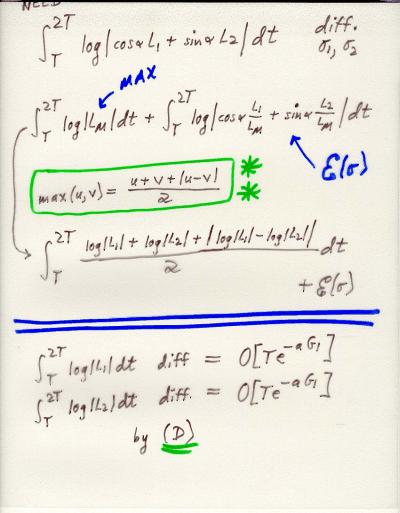 NEED
∫_T^{2T} log|cosα L₁ + sinα L₂| dt diff. σ₁, σ₂
MAX
∫_T^{2T} log|L_M| dt + ∫_T^{2T} log|cosα L₁/L_M + sinα L₂/L_M| dt
ℰ(σ)
max(u,v) = (u+v+|u-v|)/2 * *
∫_T^{2T} (log|L₁| + log|L₂| + |log|L₁| - log|L₂||)/2 dt
+ ℰ(σ)
∫_T^{2T} log|L₁| dt diff = O[Te^{-aG₁}]
∫_T^{2T} log|L₂| dt diff. = O[Te^{-aG₁}]
by (D)